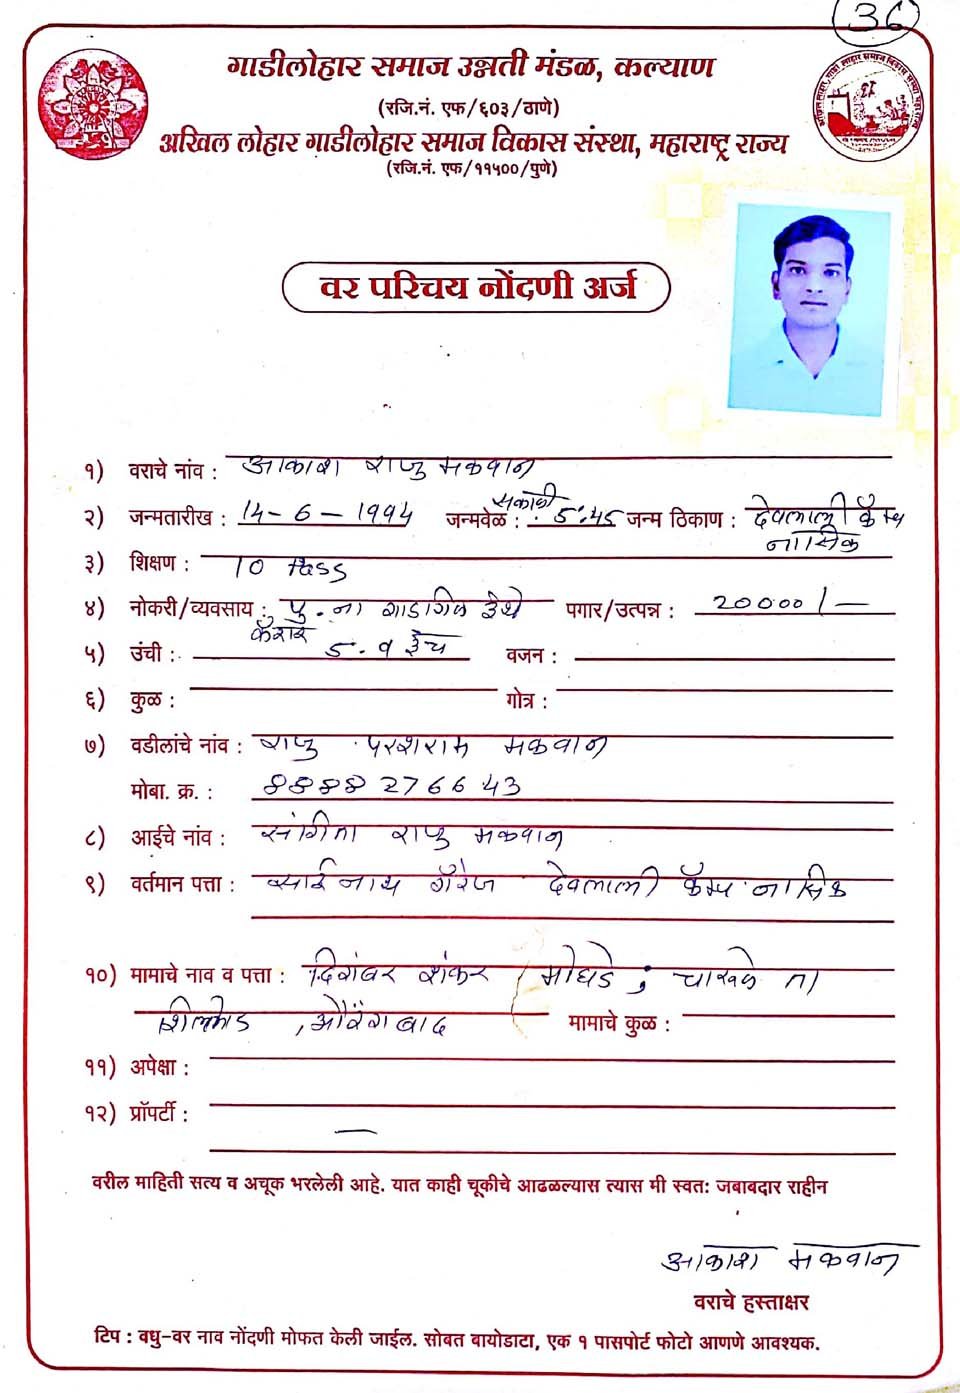 36
गाडीलोहार समाज उन्नती मंडळ, कल्याण
(रजि.नं. एफ/६०३/ठाणे)
अखिल लोहार गाडीलोहार समाज विकास संस्था, महाराष्ट्र राज्य
(रजि.नं. एफ/११५००/पुणे)
वर परिचय नोंदणी अर्ज
१) वराचे नांव : आकाश राजु मकवान
२) जन्मतारीख : 14-6-1994 जन्मवेळ : सकाळी 5:45 जन्म ठिकाण : देवलाली कॅम्प
नासिक
३) शिक्षण : 10
४) नोकरी/व्यवसाय : पु. ना गाडगिळ येथे पगार/उत्पन्न : 20000/-
५) उंची : 5. व इंच वजन :
६) कुळ : गोत्र :
७) वडीलांचे नांव : राजु परशराम मकवान
मोबा. क्र. : 8888276643
८) आईचे नांव : संगिता राजु मकवान
९) वर्तमान पत्ता : साईनाथ गॅरेज देवलाली कॅम्प नासिक
१०) मामाचे नाव व पत्ता : दिगंबर शंकर मोघडे ता
औरंगाबाद मामाचे कुळ :
११) अपेक्षा :
१२) प्रॉपर्टी : —
वरील माहिती सत्य व अचूक भरलेली आहे. यात काही चूकीचे आढळल्यास त्यास मी स्वत: जबाबदार राहीन
आकाश मकवान
वराचे हस्ताक्षर
टिप : वधु-वर नाव नोंदणी मोफत केली जाईल. सोबत बायोडाटा, एक १ पासपोर्ट फोटो आणणे आवश्यक.